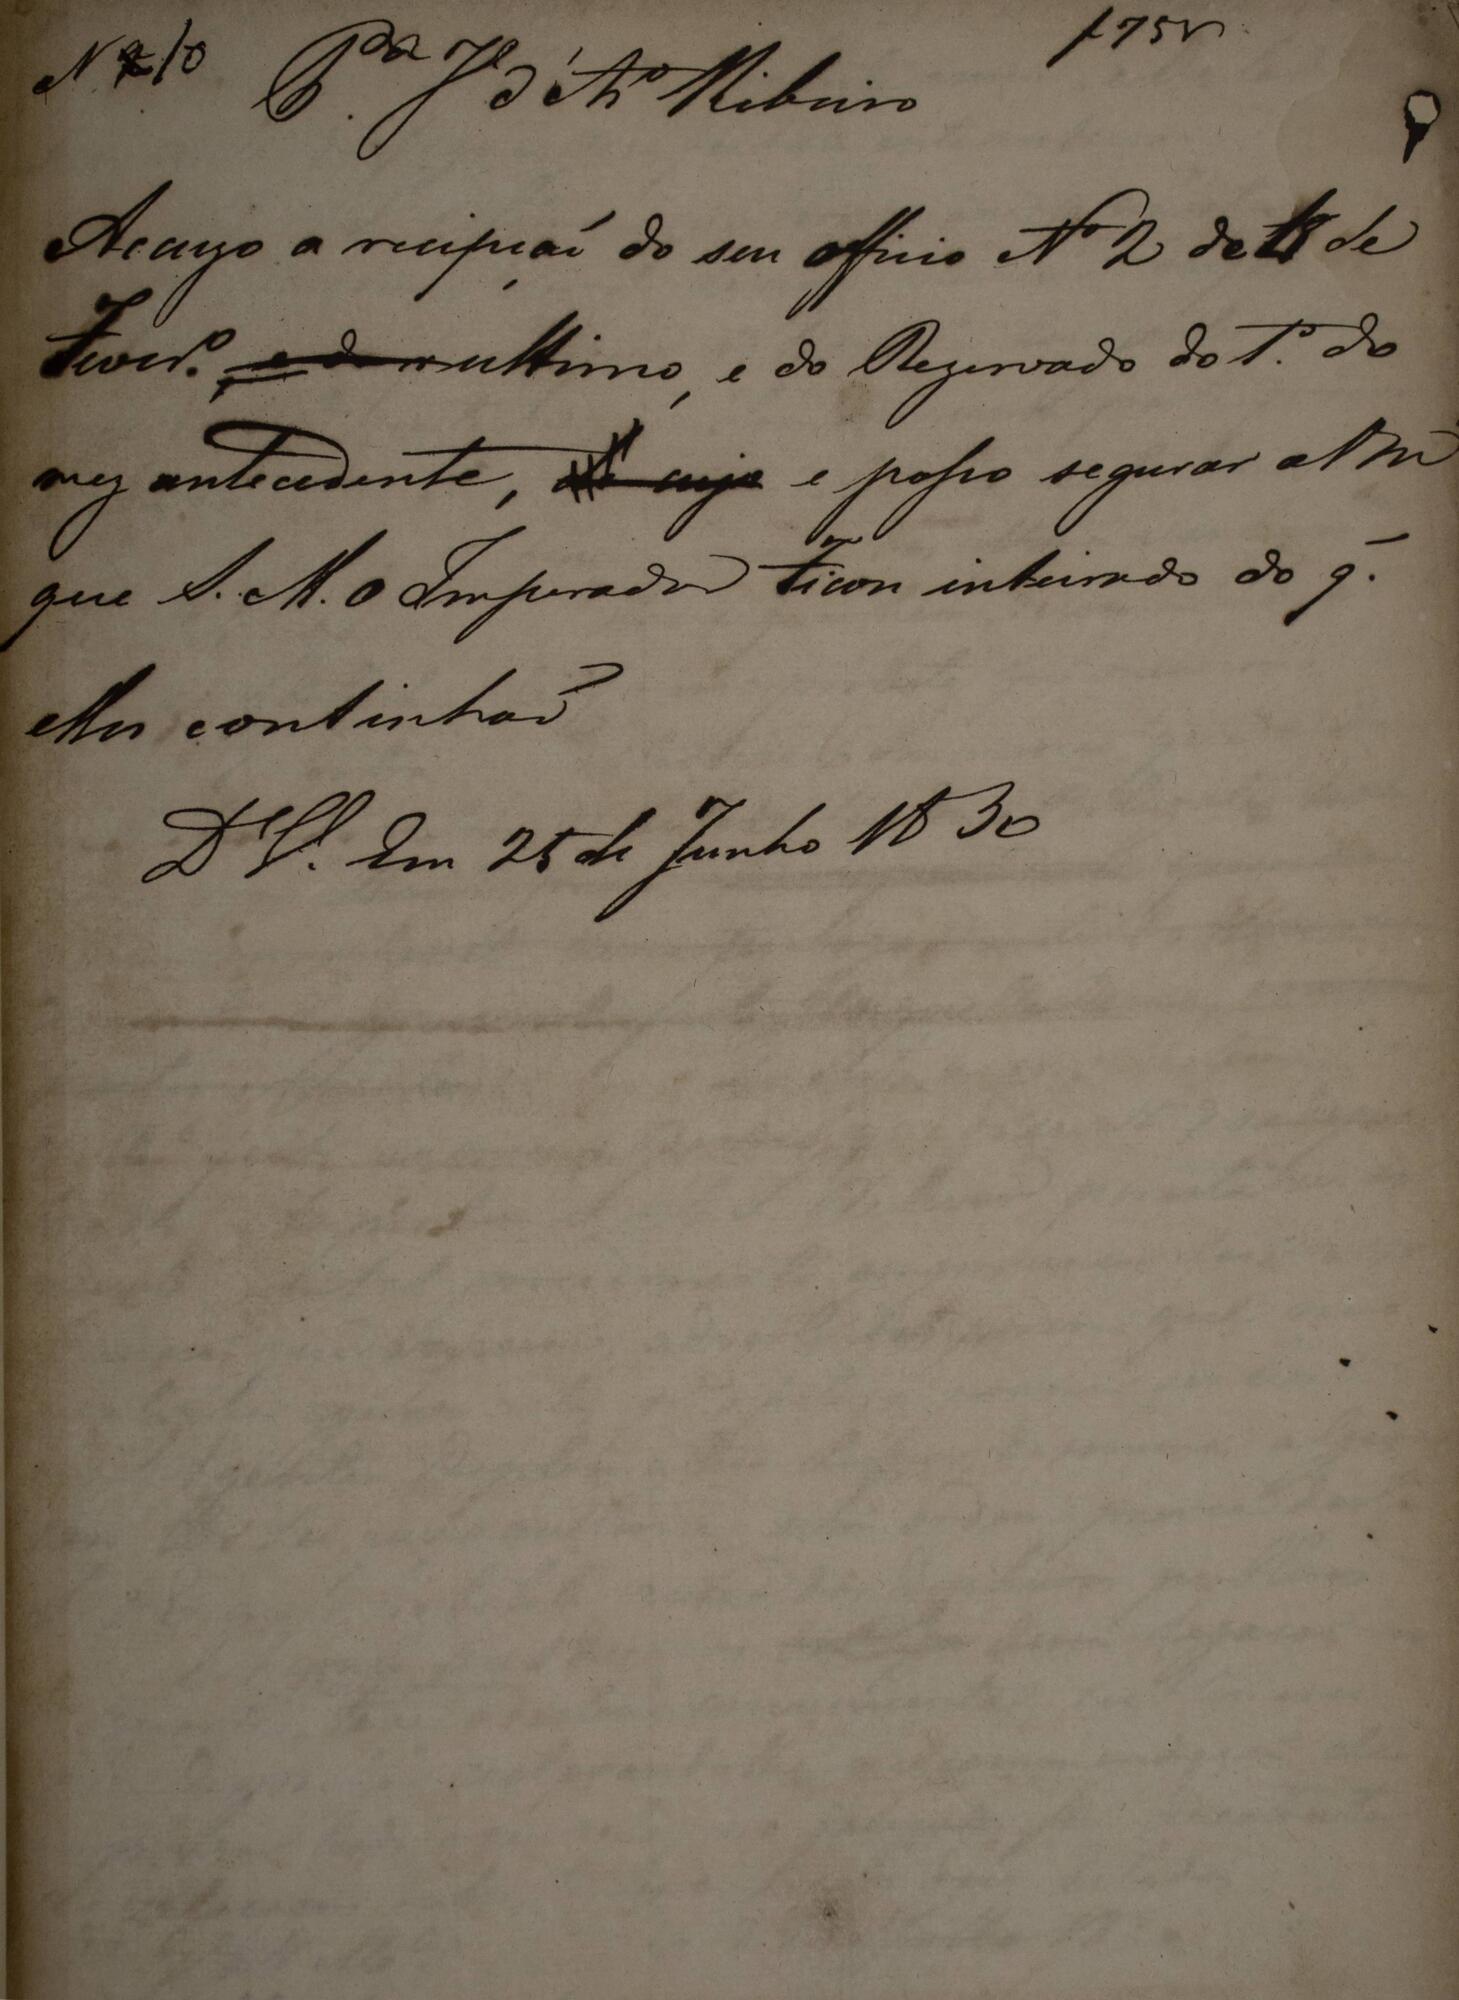 N 10 P.da Je d'Ar.o Ribeiro 175v
Accuzo a recipçaõ do seu officio No 2 de 18 de
Fever.o ultimo, e do Rezervado do 1.o do
mez antecedente, cuja e posso segurar a VM
que S. M. O Imperador ficou inteirado do q.
elles continhaõ
D.s G.e Em 25 de Junho 1830